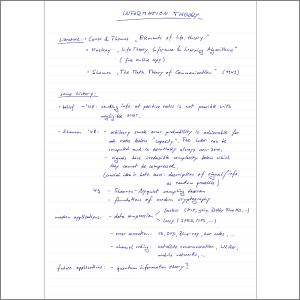 INFORMATION THEORY
Literature: - Cover & Thomas „Elements of Info. theory"
- MacKay „Info Theory, Inference & Learning Algorithms"
(free online copy)
- Shannon „The Math. Theory of Communication" (1948)
some history:
- belief ~'40: sending info at positive rates is not possible with
negligible error.
- Shannon '48: - arbitrary small error probability is achievable for
all rates below "capacity". The latter can be
computed and is essentially always non-zero.
- signals have irreducible complexity below which
they cannot be compressed.
(crucial idea in both cases: description of signal/info.
as random process)
'49 - Shannon-Nyquist sampling theorem
- foundations of modern cryptography
modern applications: - data compression
lossless (PKZIP, gzip, ...)
lossy (JPEG, MPEG, ...)
- error correction: CD, DVD, Blu-ray, bar codes, ...
- channel coding: satellite communication, WLAN,
mobile networks, ...
future applications: - quantum information theory?